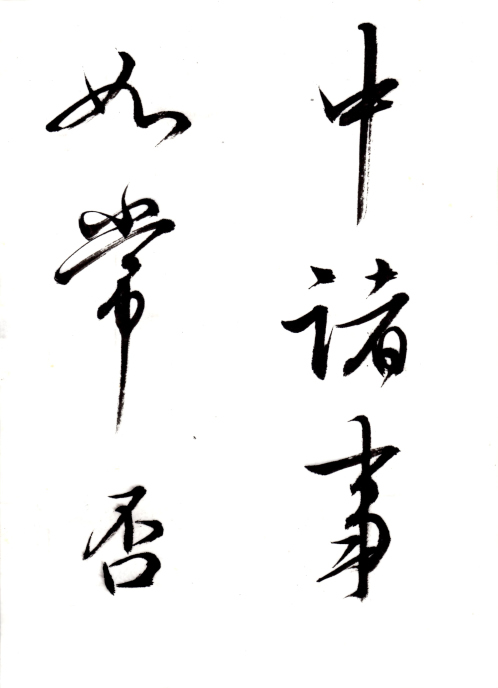 中诸事
如常否